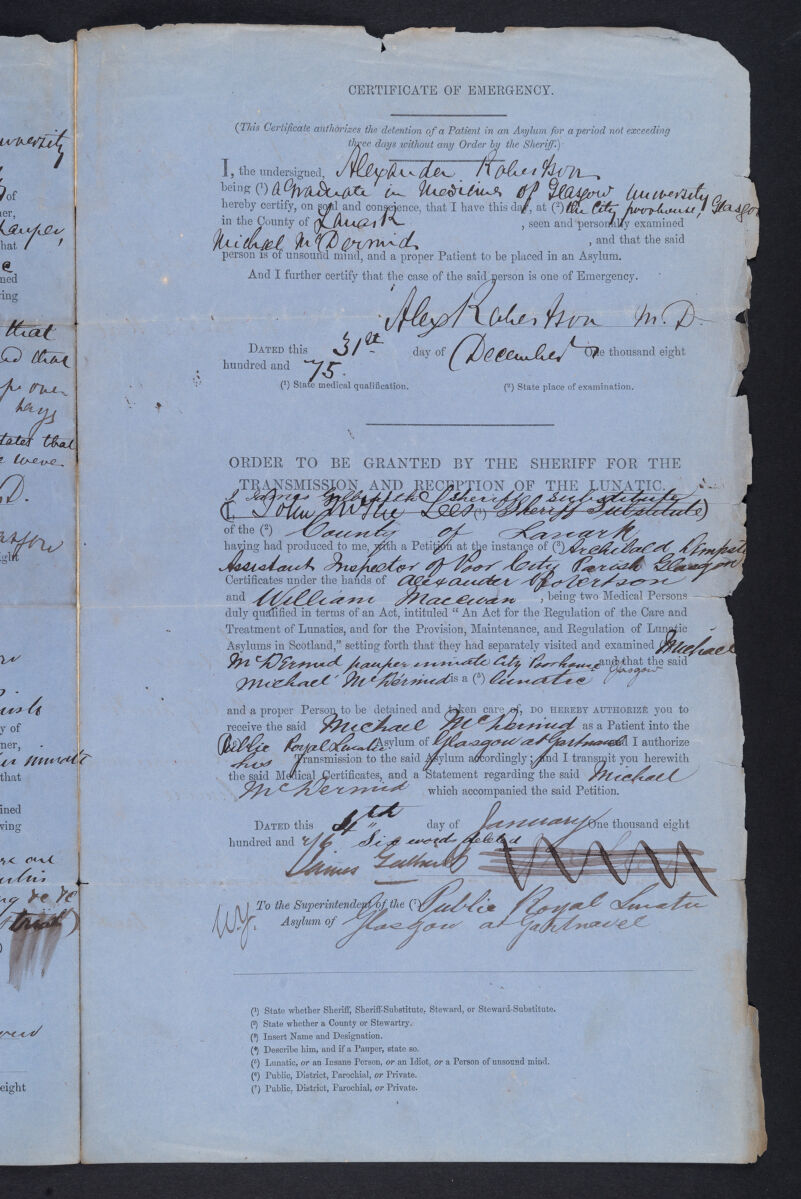 university
of
ner,
pauper,
hat
ned
ing
that
ed that
states that
were
D.
ight
y of
ner,
that
ined
ving
eight
CERTIFICATE OF EMERGENCY.
(This Certificate authorizes the detention of a Patient in an Asylum for a period not exceeding
three days without any Order by the Sheriff.)
I, the undersigned, Alexander Robertson
being (¹) a Graduate in Medicine of Glasgow University
hereby certify, on soul and conscience, that I have this day, at (²) the City poorhouse, Glasgow
in the County of Lanark , seen and personally examined
Michael McDermid , and that the said
person is of unsound mind, and a proper Patient to be placed in an Asylum.
And I further certify that the case of the said person is one of Emergency.
Alex Robertson M.D.
DATED this 31st day of December One thousand eight
hundred and 75.
(¹) State medical qualification. (²) State place of examination.
ORDER TO BE GRANTED BY THE SHERIFF FOR THE
TRANSMISSION AND RECEPTION OF THE LUNATIC.
I James Galbraith Sheriff Substitute
(I, John Lees (¹) Sheriff Substitute)
of the (²) County of Lanark
having had produced to me, with a Petition at the instance of (³) Archibald Dempste
Assistant Inspector of Poor City Parish Glasgow
Certificates under the hands of Alexander Robertson
and William Macewan , being two Medical Persons
duly qualified in terms of an Act, intituled “An Act for the Regulation of the Care and
Treatment of Lunatics, and for the Provision, Maintenance, and Regulation of Lunatic
Asylums in Scotland,” setting forth that they had separately visited and examined (⁴) Michael
McDermid pauper inmate City Poorhouse Glasgow and that the said
Michael McDermid is a (⁵) lunatic
and a proper Person to be detained and taken care of, DO HEREBY AUTHORIZE you to
receive the said Michael McDermid as a Patient into the
Public Royal Lunatic Asylum of Glasgow at Gartnavel and I authorize
his Transmission to the said Asylum accordingly; and I transmit you herewith
the said Medical Certificates, and a Statement regarding the said Michael
McDermid which accompanied the said Petition.
DATED this 4th day of January One thousand eight
hundred and 76 Six words deleted
James Galbraith
To the Superintendent of the (⁷) Public Royal Lunatic
Asylum of Glasgow at Gartnavel
(¹) State whether Sheriff, Sheriff-Substitute, Steward, or Steward-Substitute.
(²) State whether a County or Stewartry.
(³) Insert Name and Designation.
(⁴) Describe him, and if a Pauper, state so.
(⁵) Lunatic, or an Insane Person, or an Idiot, or a Person of unsound mind.
(⁶) Public, District, Parochial, or Private.
(⁷) Public, District, Parochial, or Private.